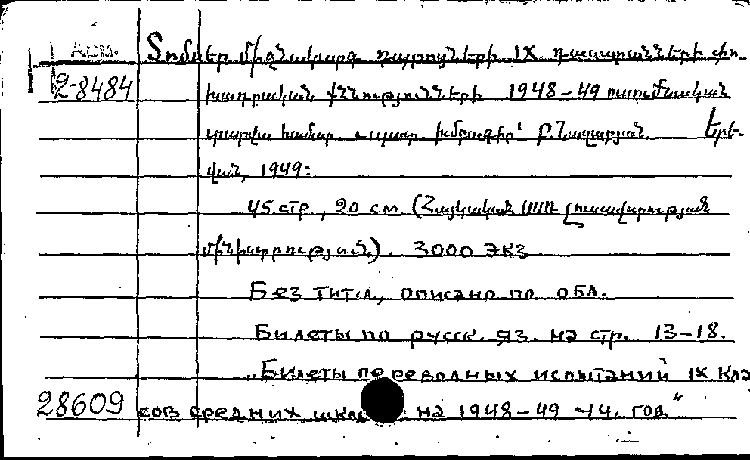 Տոմսեր միջնակարգ դպրոցների IX դասարանների փո-
2-8484
խադրական քննությունների 1948-49 ուսումնական
տարվա համար. Պատ. խմբագիր՝ Բ. Նազարյան. Երե-
վան, 1949:
45 стр., 20 см. (Հայկական ՍՍՌ լուսավորության
մինիստրություն). 3000 экз
Без титл., описано по обл.
Билеты по русск. яз. на стр. 13-18.
„Билеты переводных испытаний IX клас
28609 сов средних школ на 1948-49 год"